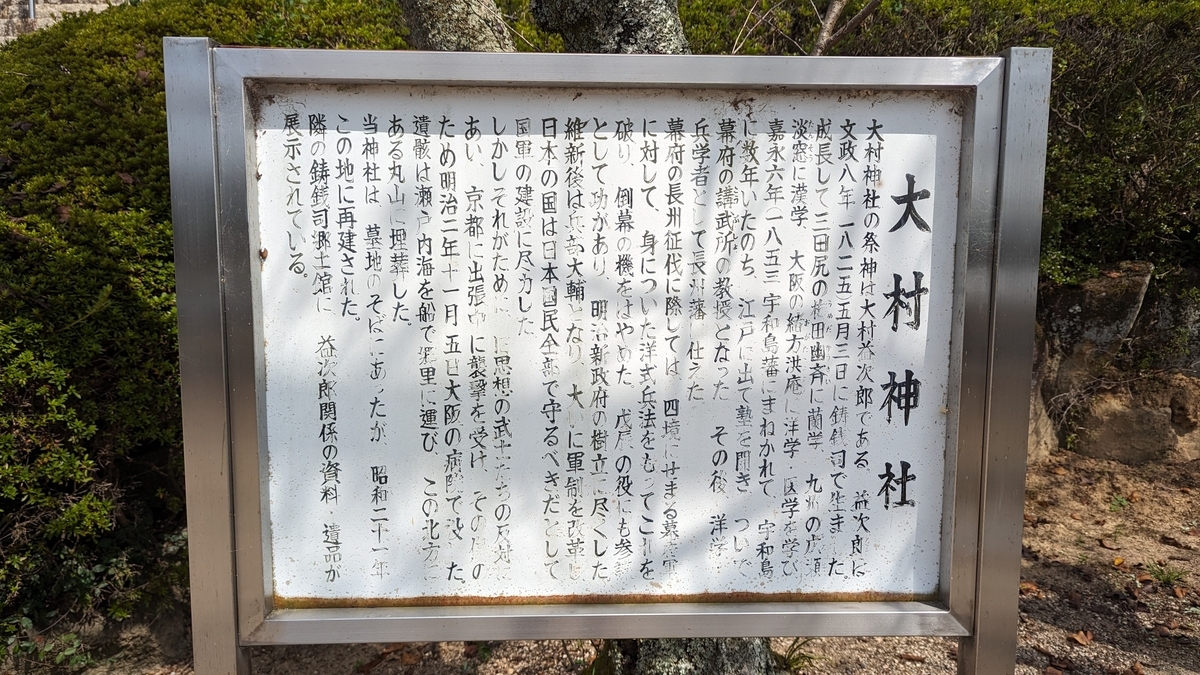 大村神社
大村神社の祭神は大村益次郎である 益次郎は
文政八年 一八二五 五月三日に鋳銭司で生まれた
成長して三田尻の梅田幽斉に蘭学 九州の広瀬
淡窓に漢学 大阪の緒方洪庵に洋学・医学を学び
嘉永六年 一八五三 宇和島藩にまねかれて 宇和島
に数年いたのち、江戸に出て塾を開き ついで
幕府の講武所の教授となった その後 洋学
兵学者として長州藩に仕えた
幕府の長州征伐に際しては、四境にせまる幕軍
に対して、身についた洋式兵法をもってこれを
破り、倒幕の機をはやめた。戊辰の役にも参
として功があり 明治新政府の樹立に尽くした
維新後は兵部大輔となり、大いに軍制を改革し
日本の国は日本国民全部で守るべきだとして
国軍の建設に尽力した
しかしそれがために 思想の武士たちの反対に
あい、京都に出張中に襲撃を受け、その
ため明治二年十一月五日大阪の病院で没した
遺骸は瀬戸内海を船で郷里に運び、この北方に
ある丸山に埋葬した。
当神社は、墓地のそばにあったが 昭和二十一年
この地に再建された。
隣の鋳銭司郷土館に 益次郎関係の資料・遺品が
展示されている。